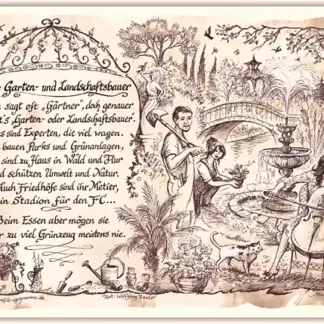 Garten- und Landschaftsbauer
sagt oft „Gärtner", doch genauer
's „Garten- oder Landschaftsbauer".
s sind Experten, die viel wagen.
bauen Parks und Grünanlagen,
sind zu Haus in Wald und Flur
d schützen Umwelt und Natur.
Auch Friedhöfe sind ihr Metier,
in Stadion für den FC...
Beim Essen aber mögen sie
r zu viel Grünzeug meistens nie.
Text: Wolfgang